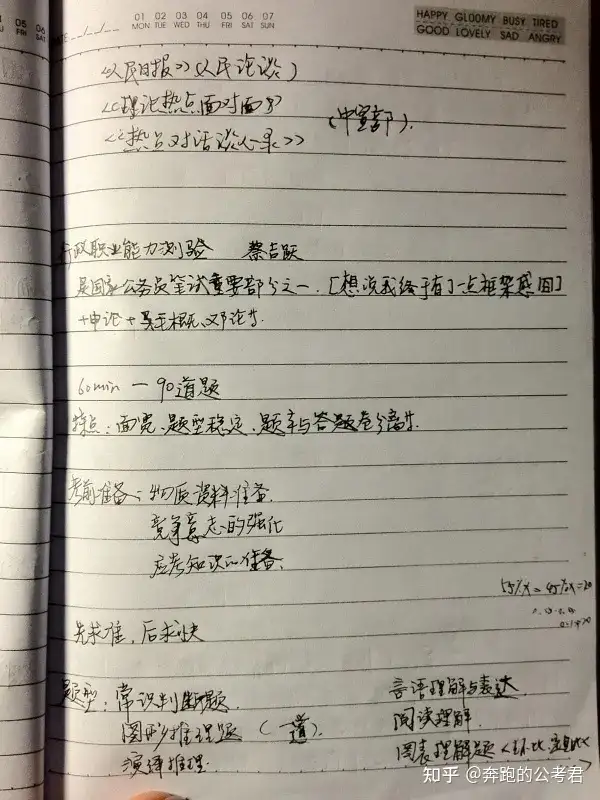 05 06
FRI SAT
DATE / /
01 02 03 04 05 06 07
MON TUE WED THU FRI SAT SUN
HAPPY GLOOMY BUSY TIRED
GOOD LOVELY SAD ANGRY
《人民日报》(人民论谈)
《理论热点面对面》
(中宣部).
《热点对话谈心录》
行政职业能力测验 蔡吉跃
是国家公务员笔试重要部分之一.[想说我终于有了一点框架感 回]
+申论+
60min — 90道题
特点:面宽、题型稳定、题卒与答题卷分离.
考前准备:物质资料准备.
竞争意志的强化
应考知识的准备.
15%x = 45%x=20
先求准,后求快
题型:常识判断题. 言语理解与表达.
图形推理题 (一道). 阅读理解.
演译推理. 图表理解题<环比
知乎 @奔跑的公考君